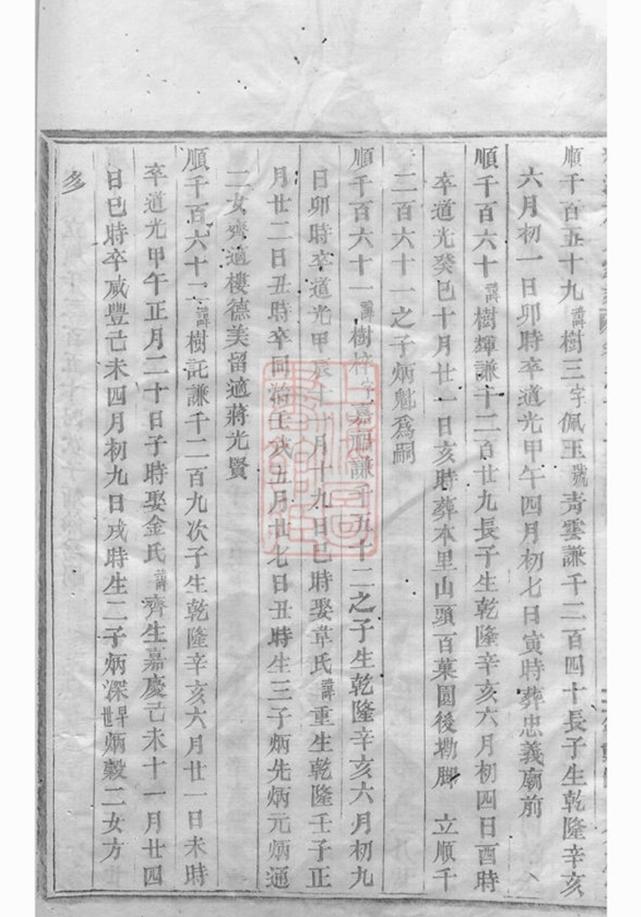 順千百五十九諱樹三字佩玉號靑雲謙千二百四十長子生乾隆辛亥
六月初一日卯時卒道光甲午四月初七日寅時葬忠義廟前
順千百六十諱樹輝謙千二百廿九長子生乾隆辛亥六月初四日酉時
卒道光癸巳十月廿一日亥時葬本里山頭百菓園後塝脚 立順千
二百六十一之子炳魁爲嗣
順千百六十一諱樹梓字嘉謙千五十二之子生乾隆辛亥六月初九
日卯時卒道光甲辰十月十九日巳時娶韋氏諱重生乾隆壬子正
月廿二日丑時卒同治壬戌五月廿七日丑時生三子炳先炳元炳通
二女齊適樓德美留適蔣光賢
順千百六十二諱樹託謙千二百九次子生乾隆辛亥六月廿一日未時
卒道光甲午正月二十日子時娶金氏諱濟生嘉慶己未十一月廿四
日巳時卒咸豐己未四月初九日戌時生二子炳深早世炳穀二女方
多